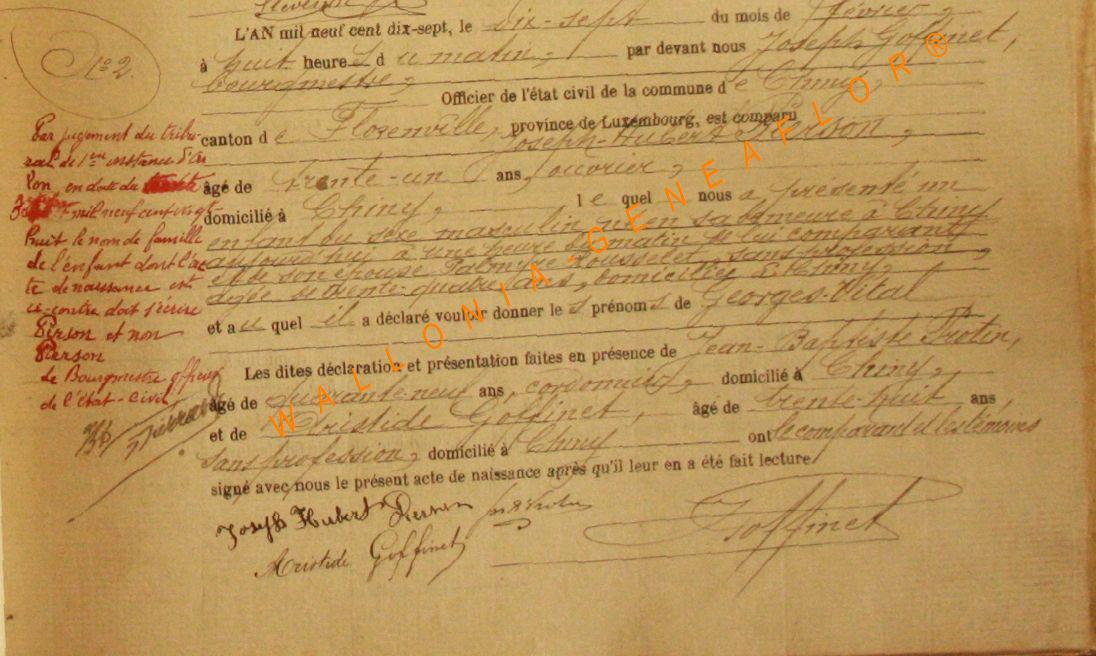 N° 2.
L'AN mil neuf cent dix-sept, le dix-sept du mois de février,
à huit heures du matin, par devant nous Joseph Goffinet,
bourgmestre, Officier de l'état civil de la commune de Chiny,
canton de Florenville, province de Luxembourg, est comparu
Joseph-Hubert Pierson,
âgé de trente-un ans, ouvrier,
domicilié à Chiny, lequel nous a présenté un
enfant du sexe masculin, né en sa demeure à Chiny
aujourd'hui à une heure du matin de lui comparant
et de son épouse Palmyre Rousselet, sans profession
âgée de trente-quatre ans, domiciliés à Chiny,
et auquel il a déclaré vouloir donner les prénoms de Georges-Vital
Les dites déclaration et présentation faites en présence de Jean-Baptiste Protin,
âgé de quarante-neuf ans, cordonnier, domicilié à Chiny,
et de Aristide Goffinet âgé de trente-huit ans,
sans profession, domicilié à Chiny ont le comparant et les témoins
signé avec nous le présent acte de naissance après qu'il leur en a été fait lecture
Joseph Hubert Pierson
Aristide Goffinet
Goffinet
Par jugement du tribu-
nal de 1ère instance d'Ar
lon, en date du
mil neuf cent vingt
huit le nom de famille
de l'enfant dont l'ac
te de naissance est
ci-contre doit s'écrire
Pirson et non
Pierson
Le Bourgmestre officier
de l'état-civil
WALLONIA-GENEAFLOR®